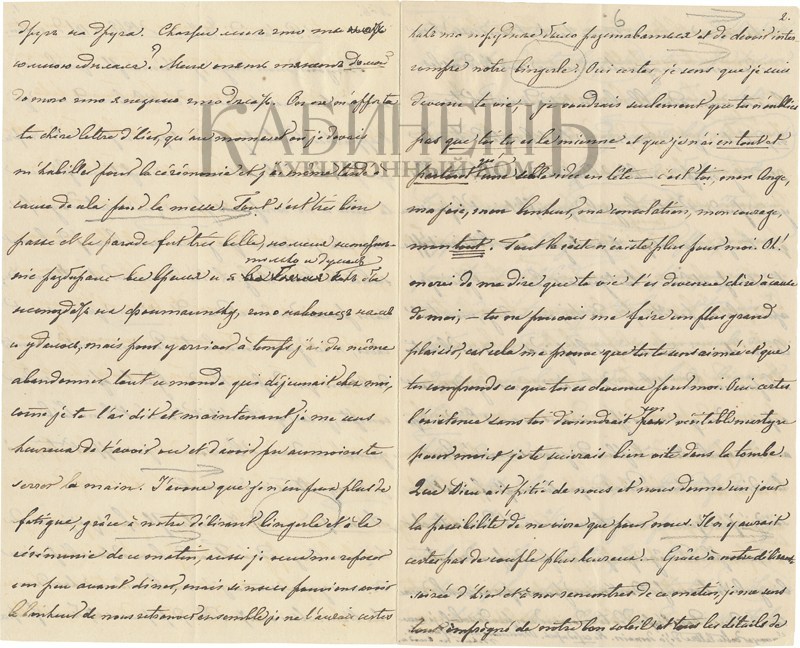 другъ на друга.
Меня очень
до того что я На on ne m'apporta
ta chère lettre d'hier, qu'au moment où je devais
m'habiller pour la cérémonie et j'ai même
cause de ala pour la messe. Tout s'est très bien
passé et la parade fut très belle,
только и думалъ
все время и я
на фонтанку, что наконецъ намъ
и удалось, mais pour y arriver à temps j'ai dû même
abandonner tout ce monde qui déjeunait chez moi,
come je te l'ai dit et maintenant je me sens
heureux de t'avoir vue et d'avoir pu au moins te
serrer la main. J'avoue que je n'en peux plus de
fatigue, grâce à notre délirant bingerle et à la
cérémonie de ce matin, aussi je veux me reposer
un peu avant diner, mais si nous pouvions avoir
le bonheur de nous retrouver ensemble je ne l'aurais certes
2.
6
намъ было et de devoir
rompre notre bingerle? Oui certes, je sens que je suis
devenu ta vie, je voudrais seulement que tu n'oublies
pas que toi tu es la mienne et que je n'ai en tout et
partout qu'une seule idée en tête – c'est toi, mon Ange,
ma joie, mon bonheur, ma consolation, mon courage,
mon tout. Tout le reste n'existe plus pour moi. Oh!
merci de me dire que ta vie t'es devenue chère à cause
de moi, – tu ne pouvais me faire un plus grand
plaisir, car cela me prouve que tu te sens aimée et que
tu comprends ce que tu es devenue pour moi. Oui certes
l'existence sans toi deviendrait un véritable martyre
pour moi et je te suivrais bien vite dans la tombe.
Que Dieu ait pitié de nous et nous donne un jour
la possibilité de ne vivre que pour nous. Il n'y aurait
certes pas de couple plus heureux. – Grâce à notre délirante
soirée d'hier et à nos rencontres de ce matin, je me sens
tout imprégné de notre bon soleil et tous les détails de
КАБИНЕТЪ
АУКЦИОННЫЙ ДОМ